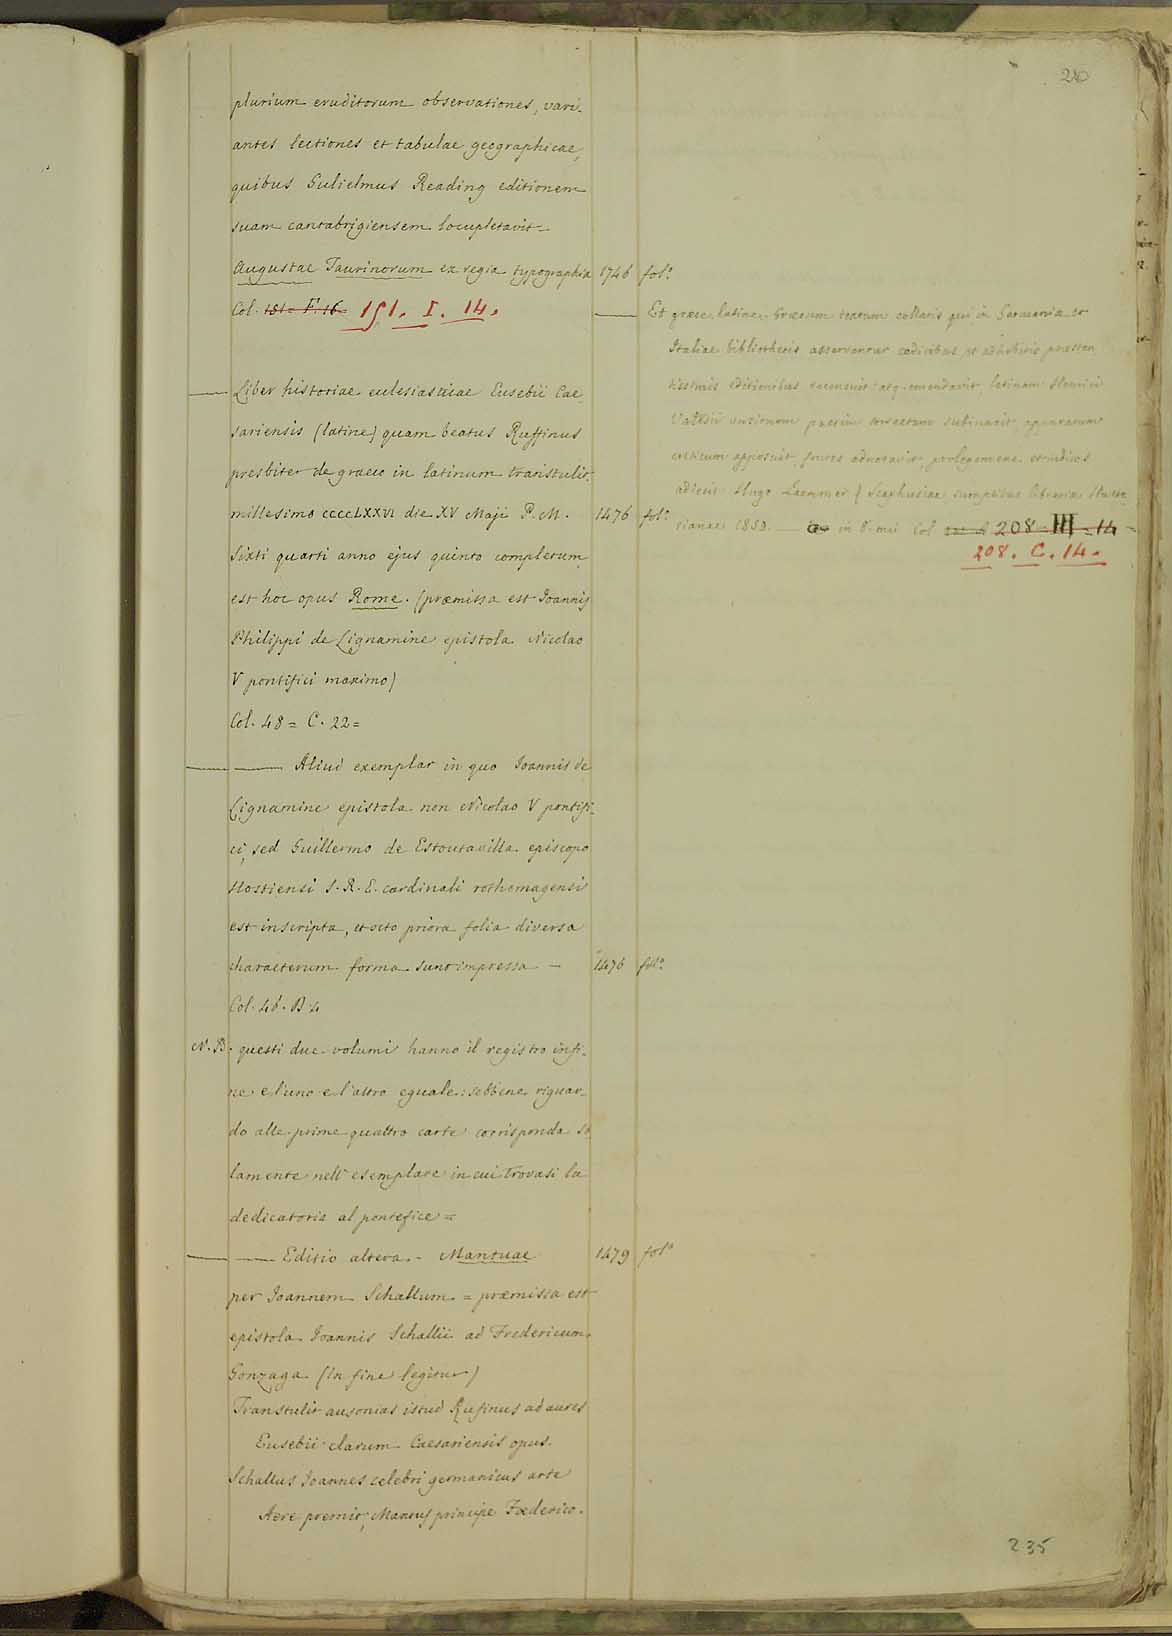 210
plurium eruditorum observationes, vari-
antes lectiones et tabulae geographicae,
quibus Gulielmus Reading editionem
suam cantabrigiensem locupletavit =
Augustae Taurinorum ex regia typographia 1746 fol.°
Col. 151 = F. 16 151. I. 14.
Liber historiae eclesiasticae Eusebii Cae-
sariensis (latine) quam beatus Ruffinus
presbiter de graeco in latinum transtulit.
millesimo CCCCLXXVI die XV Maji P. M. 1476 fol.°
Sixti quarti anno ejus quinto completum
est hoc opus Rome. (præmissa est Joannis
Philippi de Lignamine epistola Nicolao
V pontifici maximo)
Col. 48 = C. 22 =
Aliud exemplar in quo Joannis de
Lignamine epistola non Nicolao V pontifi-
ci, sed Guillermo de Estoutavilla episcopo
Hostiensi S. R. E. cardinali rothomagensi
est inscripta, et octo priora folia diversa
characterum forma sunt impressa - 1476 fol.°
Col. 48. B. 4
N. B. questi due volumi hanno il registro infi-
ne e l'uno e l'altro eguale: sebbene riguar-
do alle prime quattro carte corrisponda so
lamente nell' esemplare in cui trovasi la
dedicatoria al pontefice =
Editio altera - Mantuae 1479 fol.°
per Joannem Schallum = præmissa est
epistola Joannis Schallii ad Fredericum
Gonzaga (In fine legitur)
Transtulit ausonias istud Rufinus ad aures
Eusebii clarum Caesariensis opus.
Schallus Joannes celebri germanicus arte
Aere premit, Mantus principe Foederico.
Et græce latine. Græcum textum collatis qui in Germania et
Italiae bibliothecis asservantur codicibus et adhibitis præstan
tissimis editionibus recensuit atq. emendavit, latinam Henrici
Valesii versionem passim correctam subiunxit, apparatum
criticum apposuit, fontes adnotavit, prolegomena et indices
adiecit Hugo Laemmer { Scaphusiae sumptibus librariæ Hurte
rianae 1859. in 8. mai Col 208 = III = 14
208. C. 14.
235